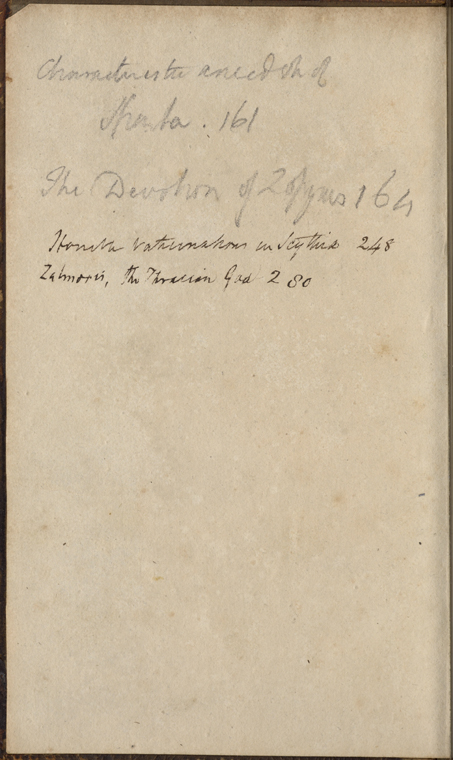 Characteristic anecdote of
Sparta. 161
The Devotion of Zopyrus 164
vaticinations in Scythia 248
Zalmoxis, the Thracian God 280